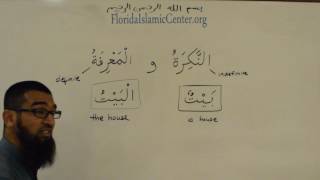 بسم الله الرحمن الرحيم
FloridaIslamicCenter.org
النَّكِرَةُ و الْمَعْرِفَةُ
indefinite definite
بَيْتٌ الْبَيْتُ
a house the house